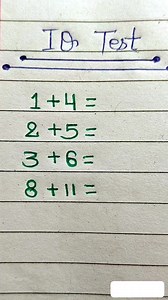 IQ Test
1+4=
2+5=
3+6=
8+11=